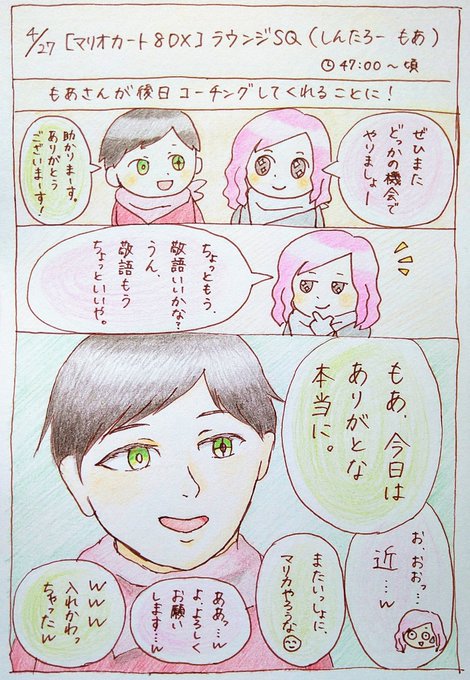 4/27 [マリオカート8DX] ラウンジSQ (しんたろー もあ)
47:00～頃
もあさんが後日 コーチングしてくれることに！
ぜひまた
どっかの機会で
やりましょー
助かりまーす。
ありがとう
ございまーす！
ちょっともう、
敬語いいかな？
うん、
敬語もう
ちょっといいや。
もあ、今日は
ありがとな
本当に。
お、おおっ…
近…w
またいっしょに、
マリカやろうな
ああっ…w
よ、よろしく
お願い
します…w
WWW
入れかわっ
ちゃったw